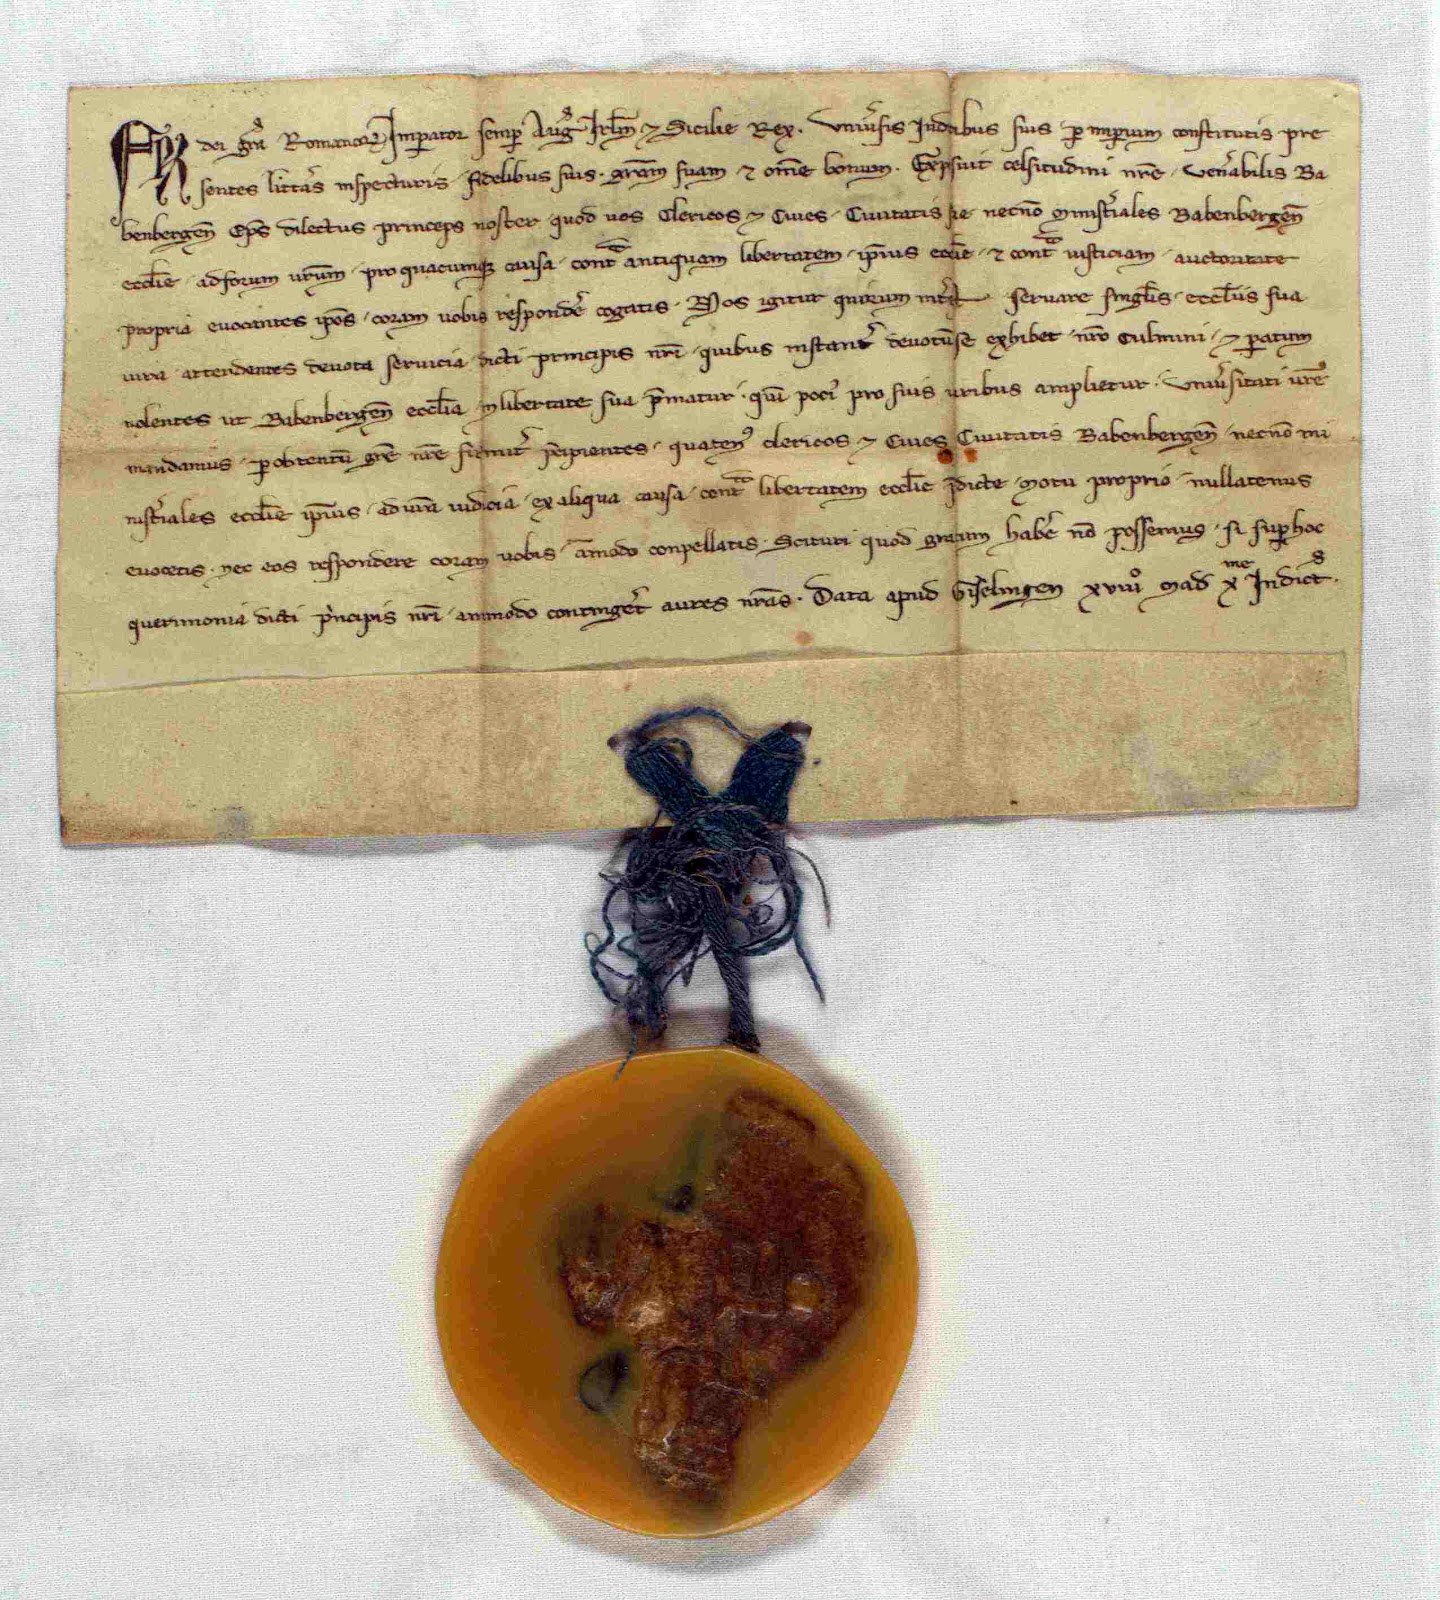 FR dei gr̄a Romanor̄ Imperator semp̄ Auḡ Irl̄m ⁊ Sicilie Rex. Univ̄sis Iudicibus suis p̄ imp̄ium constitutis pre
sentes litt̄as inspecturis fidelibus suis · gr̄am suam ⁊ om̄e bonum · Exposuit celsitudini nr̄e · ven̄abilis Ba
benbergen̄ Ep̄s dilectus princeps noster · quod vos Clericos ⁊ Cives · Civitatis sue necnō ministͬiales Babenbergen̄
eccl̄ie · ad forum vr̄um · pro quacumqꝫ causa · contͣ antiquam libertatem · ip̄ius eccl̄ie · ⁊ contͣ iusticiam · auctoritate
propria evocantes ip̄os · coram vobis respondēr cogatis · Nos igitur servare singl̄is · eccl̄iis sua
iura · attendentes devota servicia · dicti principis nr̄i · quibus instant̄ devotum se exhibet · nr̄o Culmini · ⁊ p̄atum
volentes ut Babenbergen̄ eccl̄ia in libertate sua p̄matur · q̄m poci᷒ pro suis viribus amplietur · Univ̄sitati vr̄e
mandamus · p̄ obtentū gr̄e nr̄e firmit̄ p̄cipientes · quaten᷒ clericos ⁊ Cives Civitatis Babenbergen̄ · necnō mi
nistͬiales eccl̄ie ip̄ius · ad vr̄a iudicia · ex aliqua causa · contͣ libertatem eccl̄ie p̄dicte · Motu proprio · nullatenus
evocetis · nec eos respondere coram vobis · āmodo conpellatis · Scituri quod gratum hab̄e nō possemus · si sup̄ hoc
querimonia dicti p̄ncipis nr̄i · ammodo contingēt aures nr̄as · Data apud Giselingen xviiiͦ Mad xͫͤ Indict̄ ·